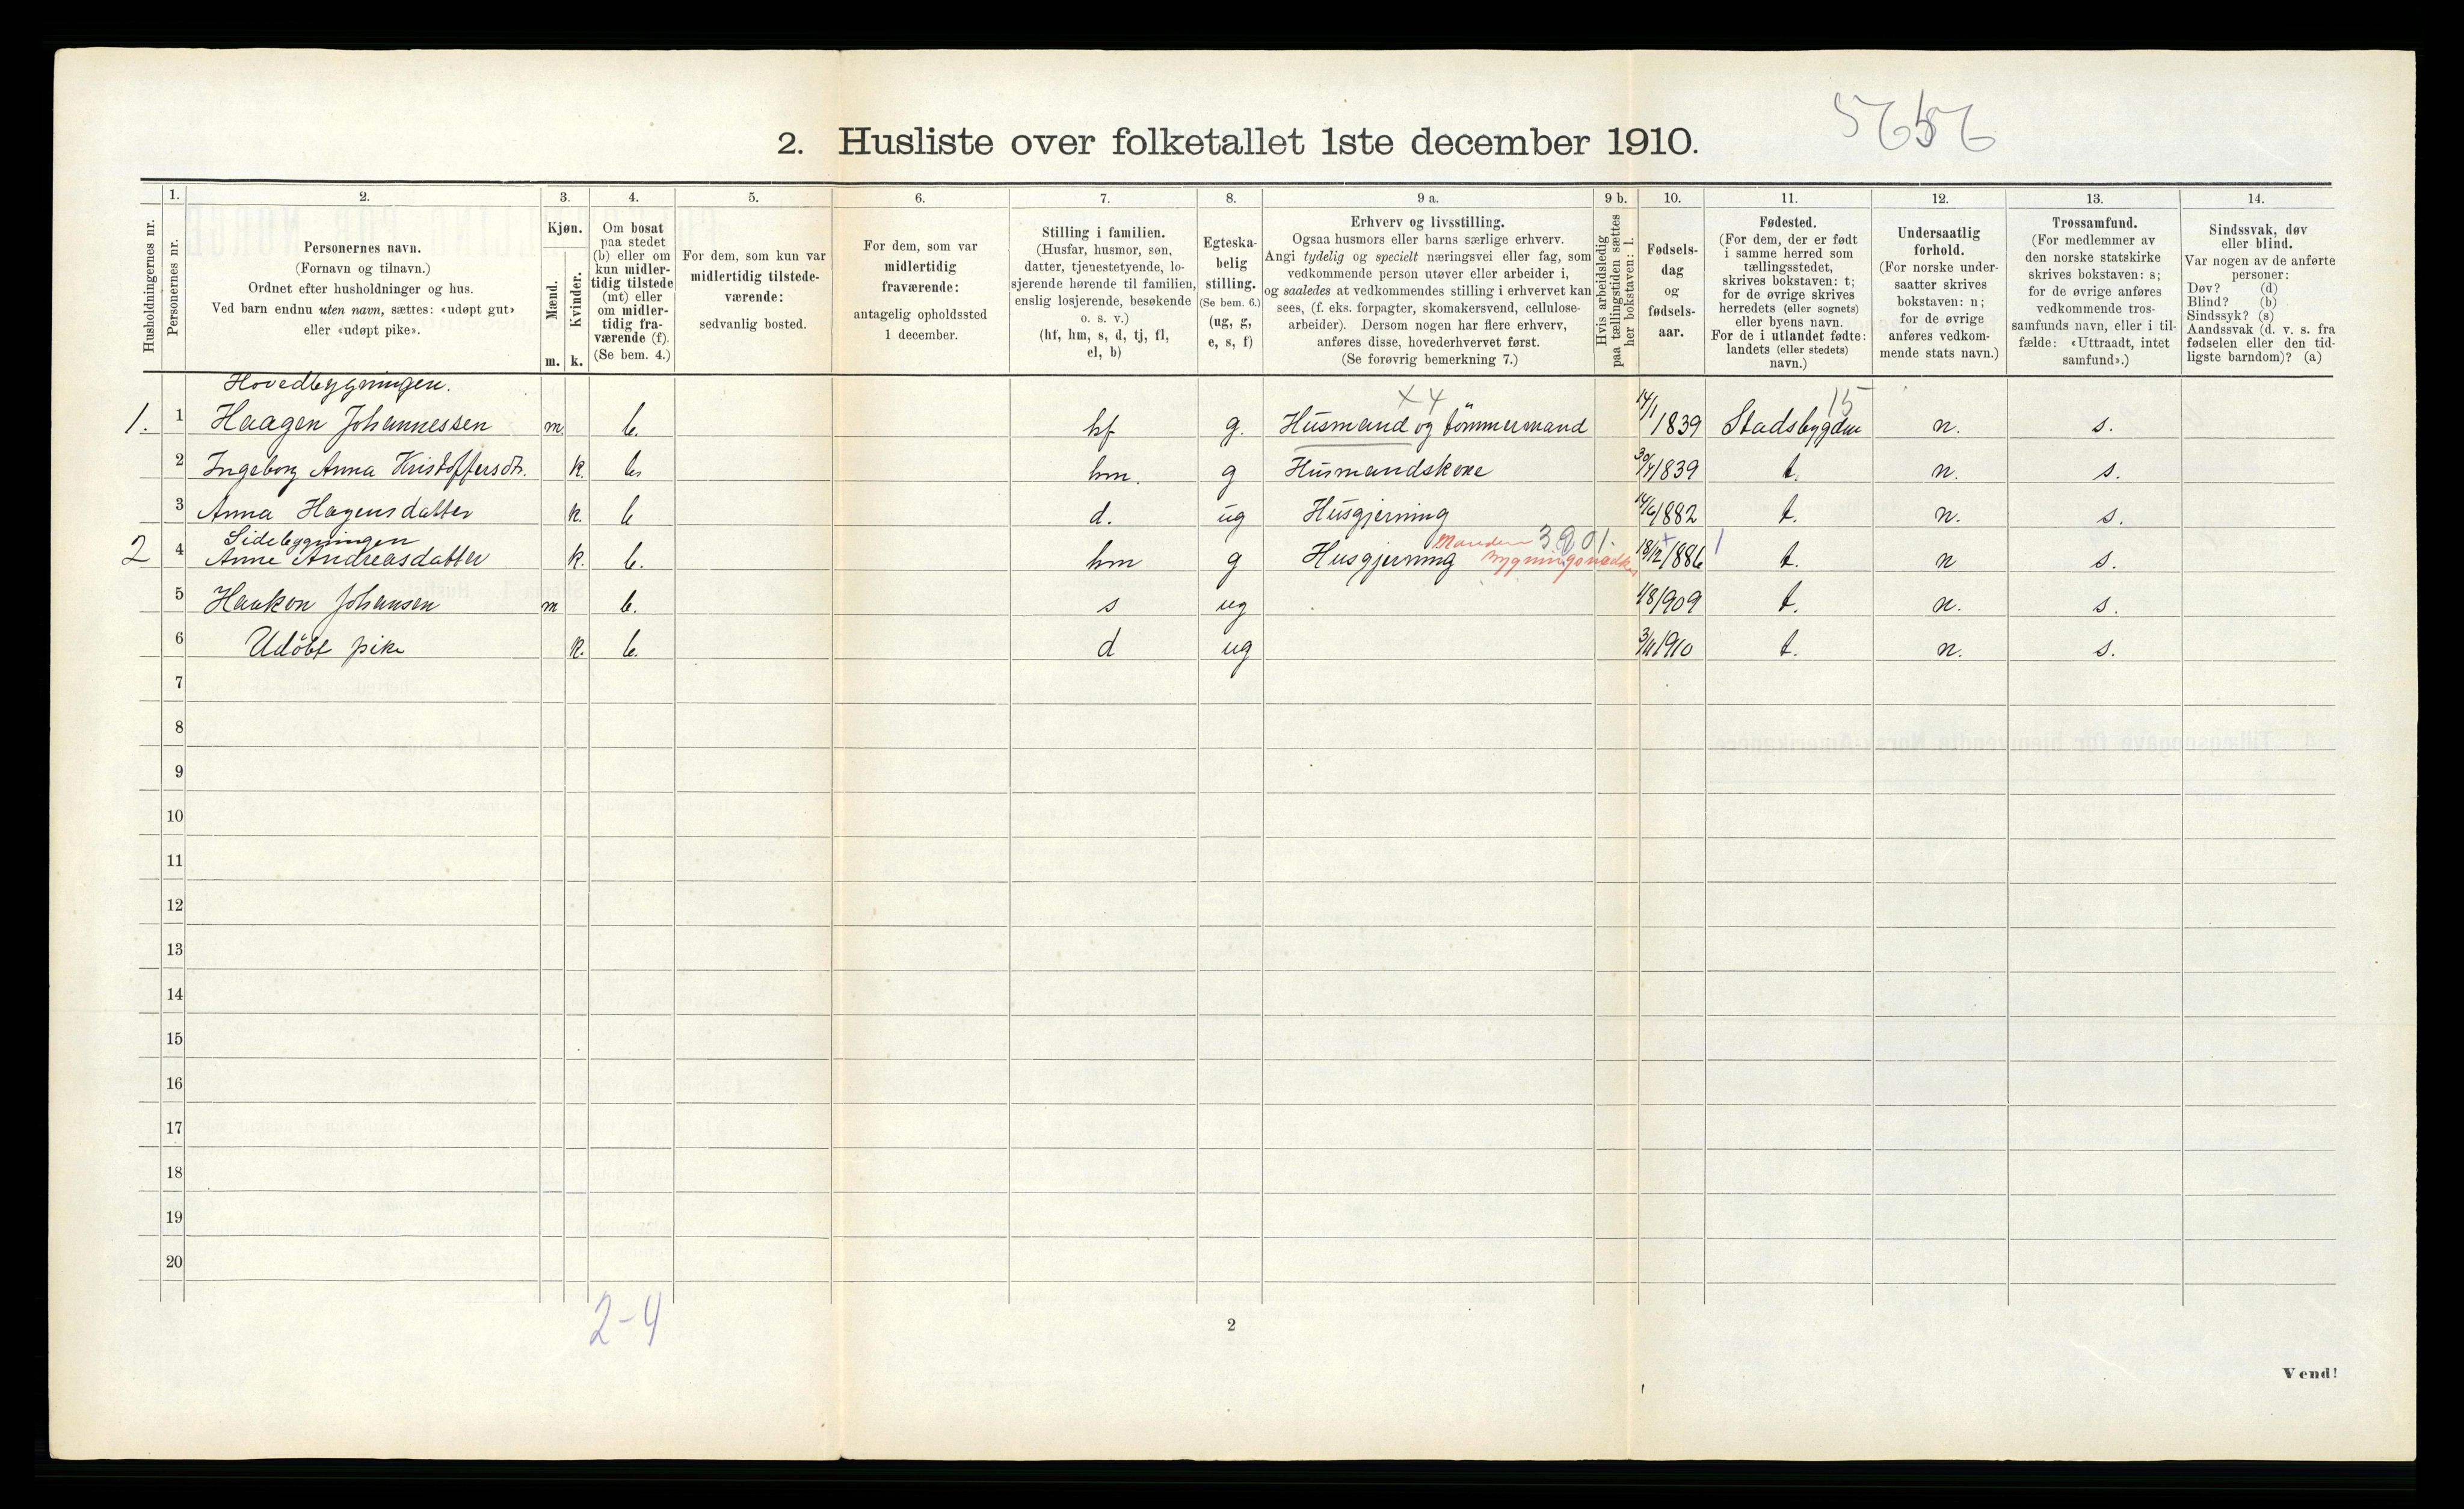 5656
2. Husliste over folketallet 1ste december 1910.
Husholdningernes nr.
1.
Personernes nr.
2.
Personernes navn.
(Fornavn og tilnavn.)
Ordnet efter husholdninger og hus.
Ved barn endnu uten navn, sættes: «udøpt gut»
eller «udøpt pike».
3.
Kjøn.
Mænd.
Kvinder.
m. k.
4.
Om bosat
paa stedet
(b) eller om
kun midler-
tidig tilstede
(mt) eller
om midler-
tidig fra-
værende (f).
(Se bem. 4.)
5.
For dem, som kun var
midlertidig tilstede-
værende:
sedvanlig bosted.
6.
For dem, som var
midlertidig
fraværende:
antagelig opholdssted
1 december.
7.
Stilling i familien.
(Husfar, husmor, søn,
datter, tjenestetyende, lo-
sjerende hørende til familien,
enslig losjerende, besøkende
o. s. v.)
(hf, hm, s, d, tj, fl,
el, b)
8.
Egteska-
belig
stilling.
(Se bem. 6.)
(ug, g,
e, s, f)
9 a.
Erhverv og livsstilling.
Ogsaa husmors eller barns særlige erhverv.
Angi tydelig og specielt næringsvei eller fag, som
vedkommende person utøver eller arbeider i,
og saaledes at vedkommendes stilling i erhvervet kan
sees, (f. eks. forpagter, skomakersvend, cellulose-
arbeider). Dersom nogen har flere erhverv,
anføres disse, hovederhvervet først.
(Se forøvrig bemerkning 7.)
9 b.
Hvis arbeidsledig
paa tællingstiden sættes
her bokstaven: l.
10.
Fødsels-
dag
og
fødsels-
aar.
11.
Fødested.
(For dem, der er født
i samme herred som
tællingsstedet,
skrives bokstaven: t;
for de øvrige skrives
herredets (eller sognets)
eller byens navn.
For de i utlandet fødte:
landets (eller stedets)
navn.)
12.
Undersaatlig
forhold.
(For norske under-
saatter skrives
bokstaven: n;
for de øvrige
anføres vedkom-
mende stats navn.)
13.
Trossamfund.
(For medlemmer av
den norske statskirke
skrives bokstaven: s;
for de øvrige anføres
vedkommende tros-
samfunds navn, eller i til-
fælde: «Uttraadt, intet
samfund».)
14.
Sindssvak, døv
eller blind.
Var nogen av de anførte
personer:
Døv? (d)
Blind? (b)
Sindssyk? (s)
Aandssvak (d. v. s. fra
fødselen eller den tid-
ligste barndom)? (a)
Hovedbygningen.
X 4 15
1. 1 Haagen Johannessen m b. hf g. Husmand og tömmermand 14/1 1839 Stadsbygden n. s.
2 Ingeborg Anna Kristoffersdtr. k. b. hm. g Husmandskone 30/4 1839 t. n. s.
3 Anna Hagensdatter k. b d. ug Husgjerning 14/6 1882 t. n. s.
Sidebygningen
Manden 3901.
2 4 Anne Andreasdatter k. b. hm g Husgjerning bygningssnedker 18/12 1886 1 t. n s.
5 Haakon Johansen m b. s ug 1/8 1909 t. n. s.
6 Udöbt pike k. b. d ug 3/11 1910 t. n. s.
7
8
9
10
11
12
13
14
15
16
17
18
19
20
2-4
2
Vend!